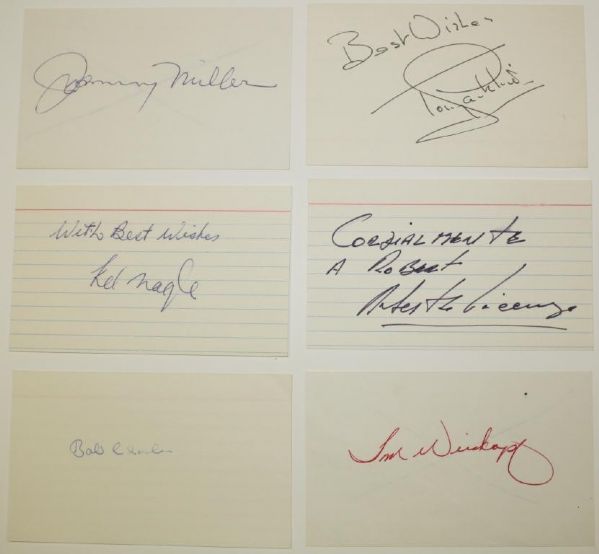 Johnny Miller
Best Wishes
Tony Jacklin
With Best Wishes
Kel Nagle
CORDIALMENTE
A Robert
Roberto De Vicenzo
Bob Charles
Tom Weiskopf